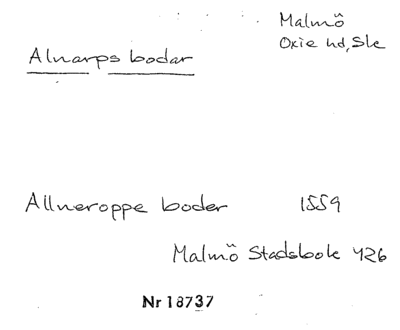 Malmö
Oxie hd, Ske
Alnarps bodar
Allneroppe boder 1559
Malmö Stadsbok 426
Nr 18737